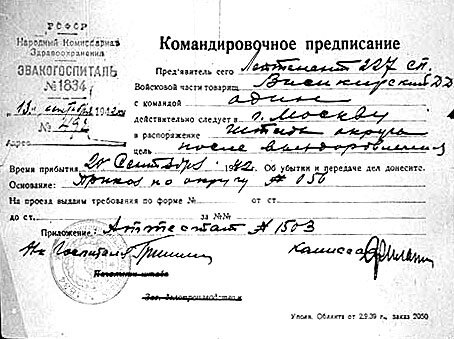 РСФСР
Народный Комиссариат
Здравоохранения
ЭВАКОГОСПИТАЛЬ
№ 1834
13 сентября 1942
№ 292
Адрес
Командировочное предписание
Пред'явитель сего Лейтенант 227 сп.
Войсковой части товарищ
с командой один
действительно следует в г. Москву
в распоряжение Штаба округа
цель после выздоровления
Время прибытия 20 Сентября 1942 Об убытии и передаче дел донесите.
Основание: Приказ по округу № 056
На проезд выданы требования по форме № от ст.
до ст. за №№
Приложение: Аттестат № 1503
Нач Госпиталя
Комиссар
Начальник штаба
Зав. делопроизводством
Уполн. Обллита от 2.9.39 г., заказ 2050